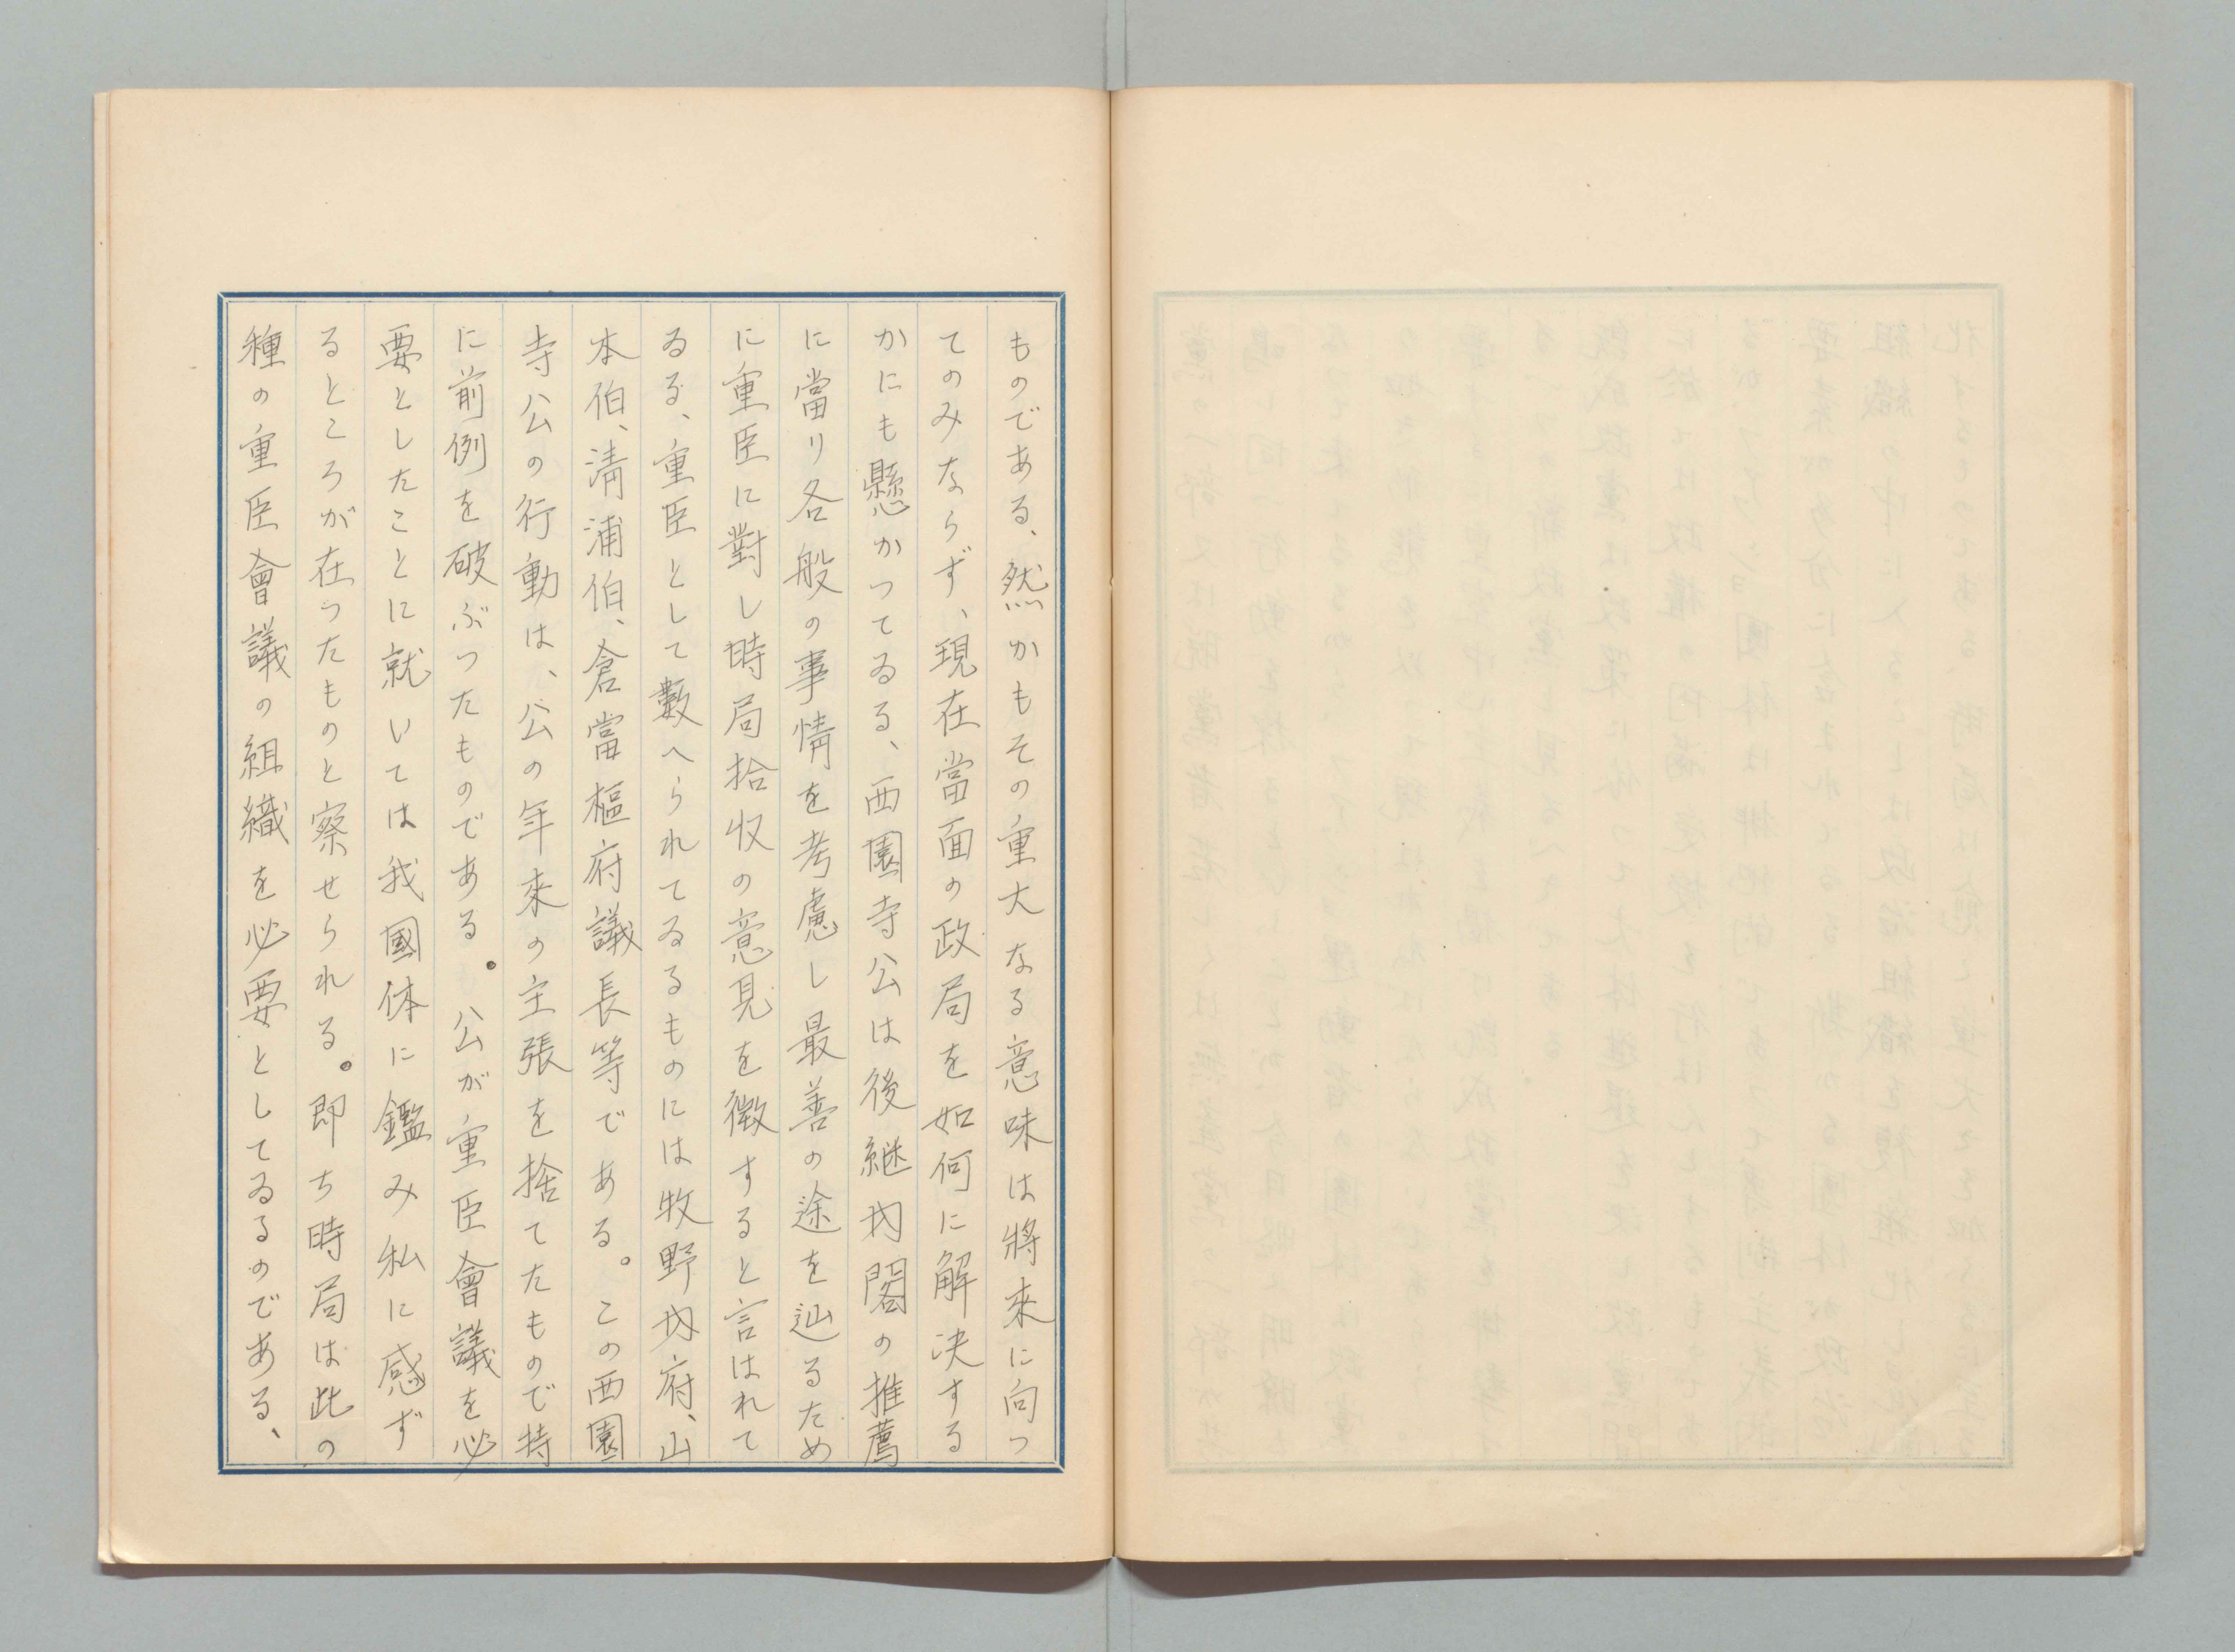 ものである、然かもその重大なる意味は將来に向つ
てのみならず、現在當面の政局を如何に解決する
かにも懸かつてゐる、西園寺公は後継内閣の推薦
に當り各般の事情を考慮し最善の途を辿るため
に重臣に對し時局拾収の意見を徴すると言はれて
ゐる、重臣として數へられてゐるものには牧野内府、山
本伯、清浦伯、倉富樞府議長等である。この西園
寺公の行動は、公の年来の主張を捨てたもので特
に前例を破ぶつたものである。公が重臣會議を必
要としたことに就いては我國体に鑑み私に感ず
るところが在つたものと察せられる。即ち時局は此の
種の重臣會議の組織を必要としてゐるのである、